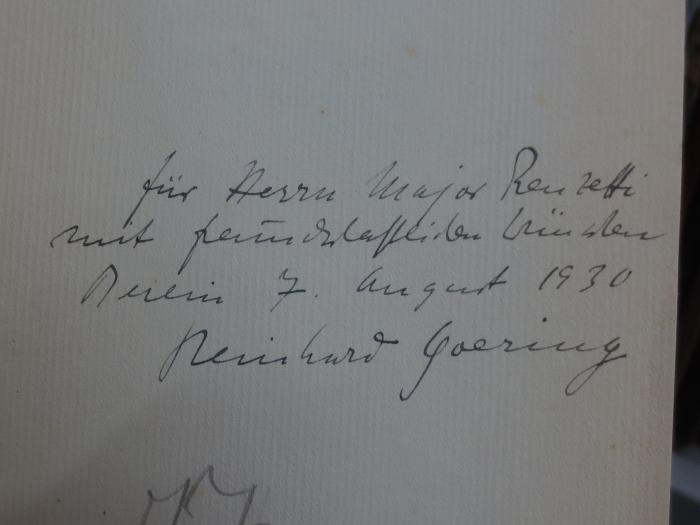 für Herrn Major Renzetti
mit freundschaftlichen Wünschen
Berlin 7. August 1930
Reinhard Goering